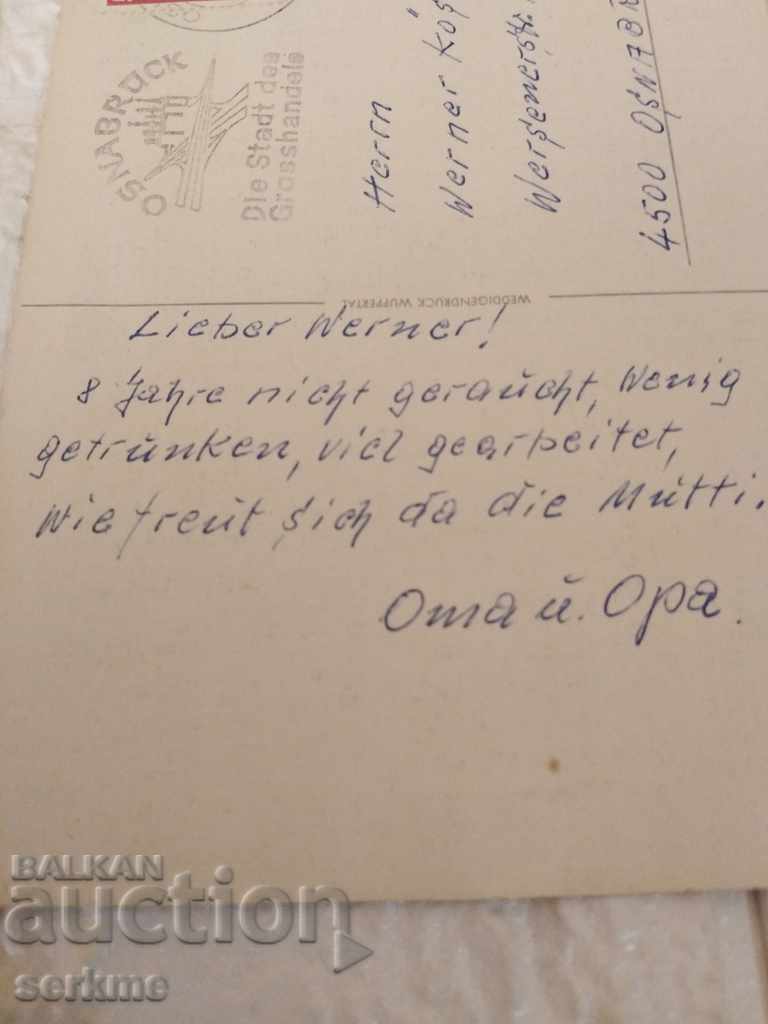 OSNABRÜCK
Die Stadt des
Grosshandels
Herrn
Werner
4500
WEDDIGENDRUCK WUPPERTAL
Lieber Werner!
8 Jahre nicht geraucht, wenig
getrunken, viel gearbeitet,
wie freut sich da die Mutti.
Oma u. Opa.
BALKAN
auction
serkme